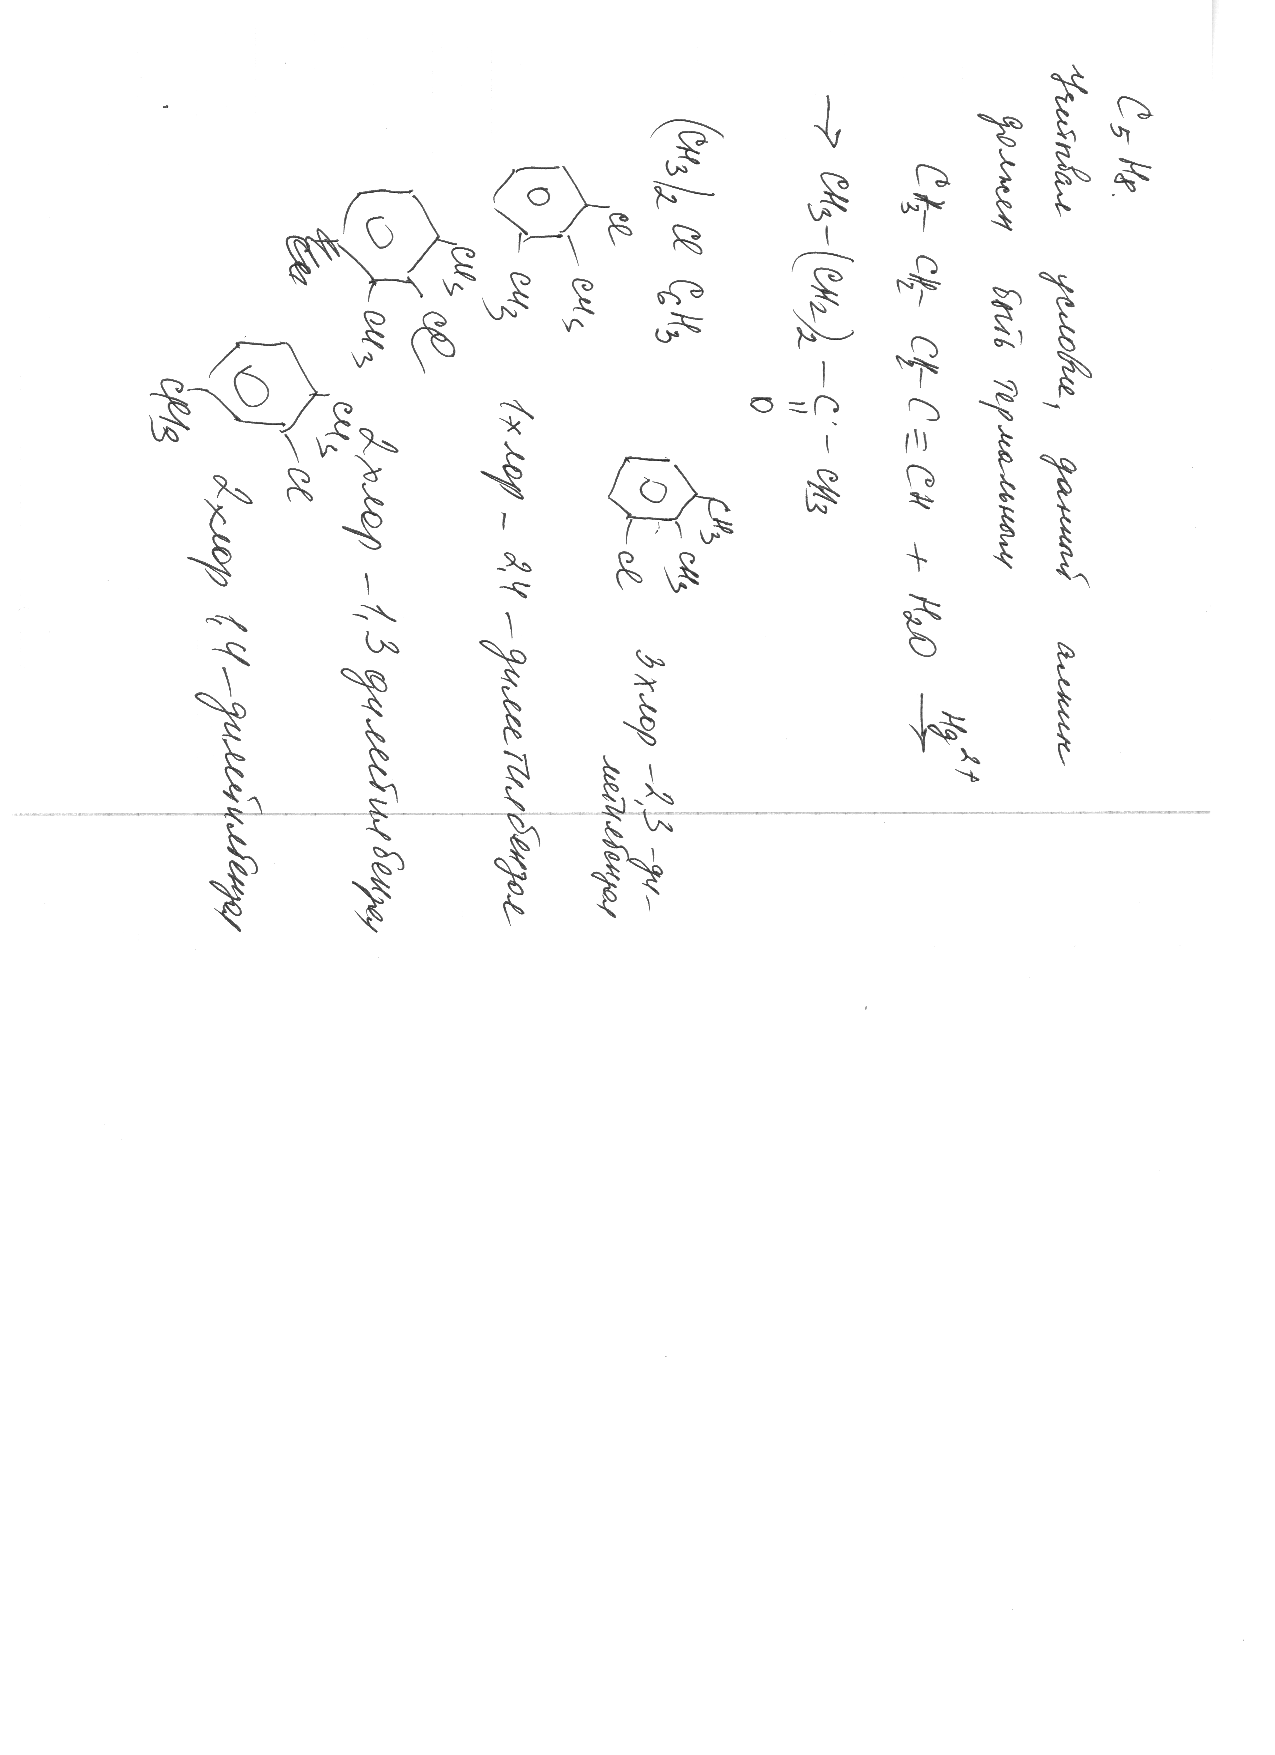 C5 H8.
учитывая условие, данный алкин
должен быть термальным
CH3 – CH2 – CH2 – C ≡ CH + H2O Hg2+ →
→ CH3 – (CH2)2 – C – CH3
=
O
(CH3)2 Cl C6H3
CH3
CH3
Cl
3 хлор – 2,3 – ди-
метилбензол
Cl
CH3
CH3
1 хлор – 2,4 – диметилбензол
CH3
Cl
CH3
2 хлор – 1,3 диметилбензол
CH3
Cl
CH3
2 хлор 1,4 – диметилбензол